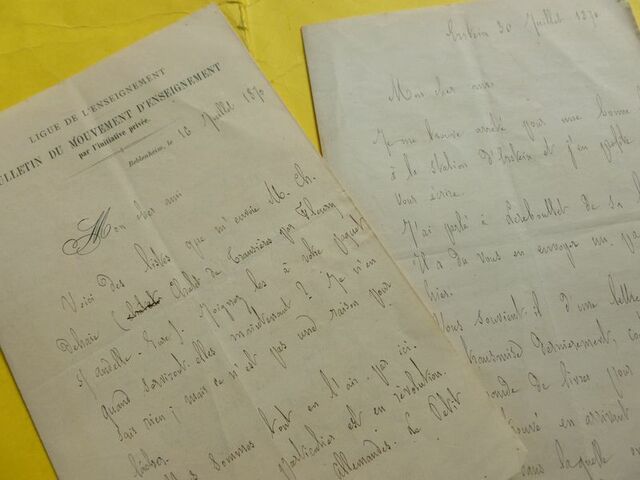 LIGUE DE L'ENSEIGNEMENT
BULLETIN DU MOUVEMENT D'ENSEIGNEMENT
par l'initiative privée.
Beblenheim, le 16 Juillet 1870
Mon cher ami
Voici des listes que m'envoie M. Ch.
Delraie ( Chalet de par Fleury
s/ Andelle - Eure). Joignez les à votre paquet
quand serviront-elles maintenant? Je n'en
sais rien; mais ce n'est pas une raison pour
lâcher.
sommes tout en l'air par ici.
particulier est en révolution.
allemandes. Le Petit
Erstein 30 Juillet 1870
Mon cher ami
Je me trouve arrêté pour une bonne
à la station d'Erstein et j'en profite
vous écrire.
J'ai parlé à Lereboullet de sa
Il a dû vous en envoyer un pa
hier.
Vous souvient-il d'une lettre
transmise dernièrement, co
de livres, pour
trouvé en arrivant
dans laquelle on